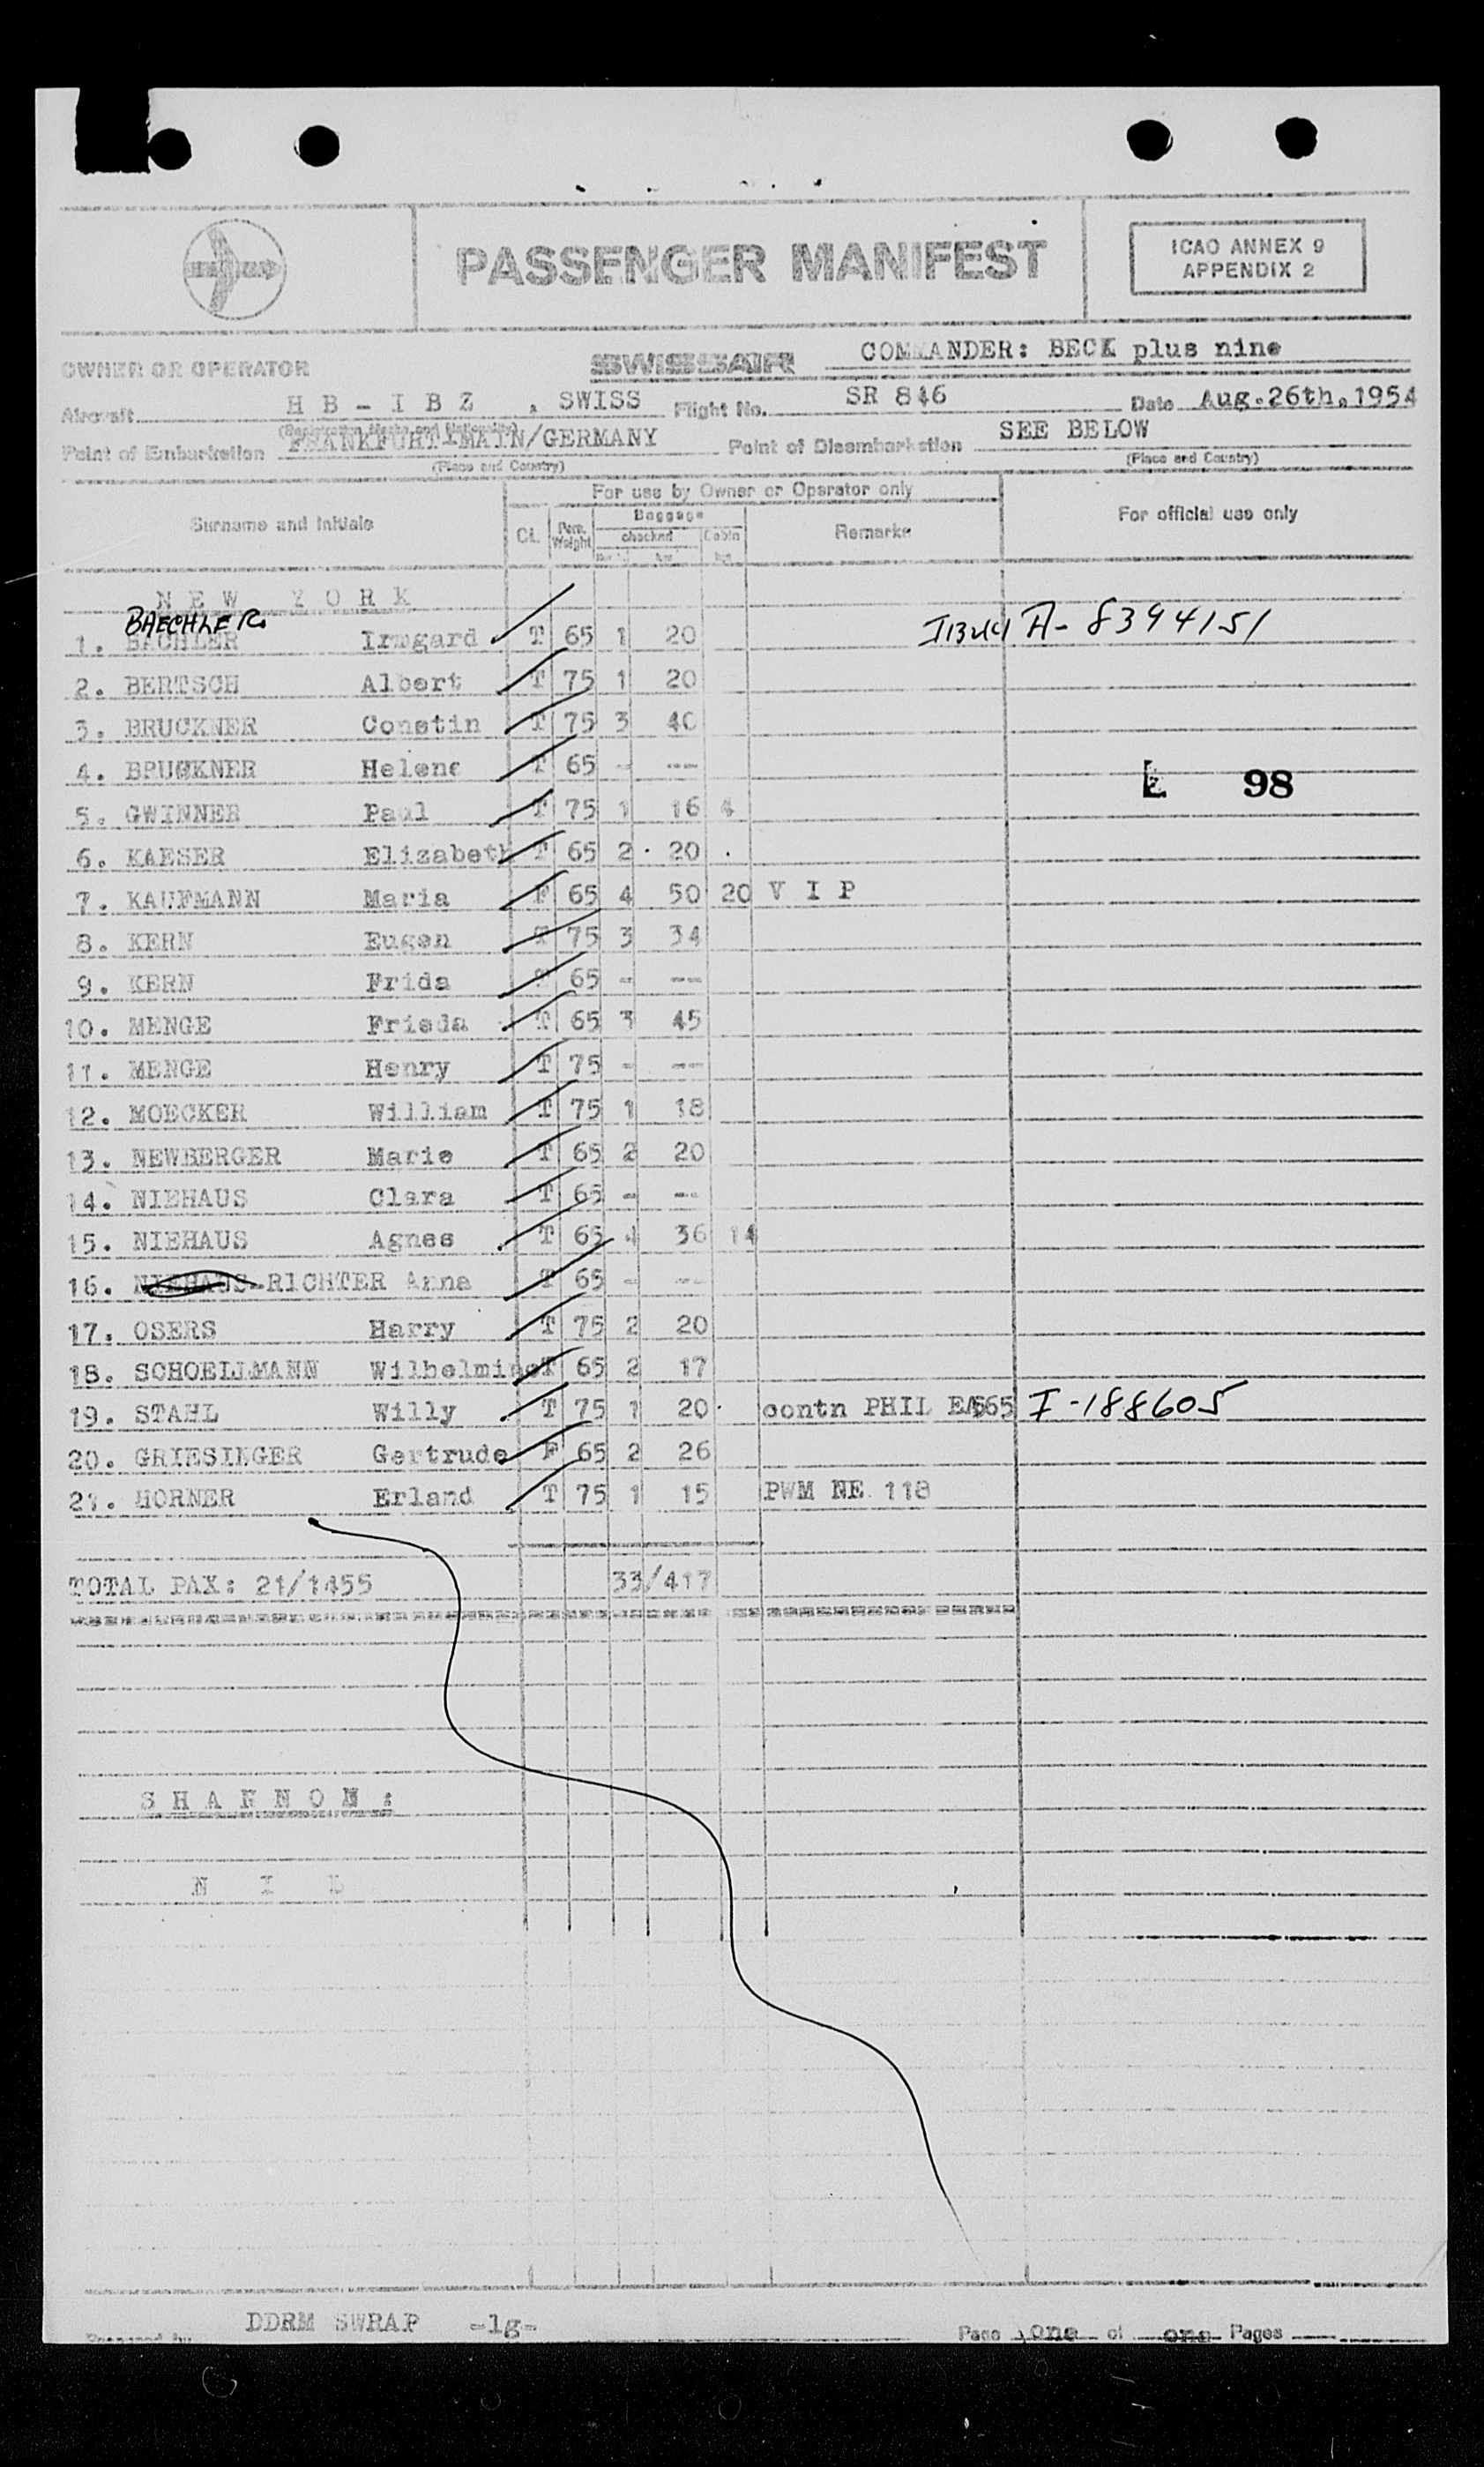 PASSENGER MANIFEST
ICAO ANNEX 9
APPENDIX 2
OWNER OR OPERATOR SWISSAIR COMMANDER: BECK plus nine
Aircraft H B - I B Z , SWISS Flight No. SR 846 Date Aug.26th.1954
(Registration Marks and Nationality)
Point of Embarkation FRANKFURT-MAIN/GERMANY Point of Disembarkation SEE BELOW
(Place and Country) (Place and Country)
For use by Owner or Operator only
Surname and Initials Cl. Pers. Weight Baggage checked Cabin Remarks For official use only
N E W Y O R K
BAECHLER
1. BACHLER Irmgard T 65 1 20 A-8394151
2. BERTSCH Albert T 75 1 20
3. BRUCKNER Constin T 75 3 40
4. BRUCKNER Helene T 65 - ---
98
5. GWINNER Paul T 75 1 16 4
6. KAESER Elizabeth T 65 2 20
7. KAUFMANN Maria F 65 4 50 20 V I P
8. KERN Eugen T 75 3 34
9. KERN Frida T 65 - ---
10. MENGE Frieda T 65 3 45
11. MENGE Henry T 75 - ---
12. MOECKER William T 75 1 18
13. NEWBERGER Marie T 65 2 20
14. NIEHAUS Clara T 65 - ---
15. NIEHAUS Agnes T 65 4 36 14
16. NIEHAUS-RICHTER Anna T 65 - ---
17. OSERS Harry T 75 2 20
18. SCHOELLMANN Wilhelmine T 65 2 17
19. STAHL Willy T 75 1 20 contn PHIL EA565 I-188605
20. GRIESINGER Gertrude F 65 2 26
21. HORNER Erland T 75 1 15 PWM NE 118
TOTAL PAX: 21/1455 33/417
S H A N N O N :
N I L
Prepared by DDRM SWRAP -lg- Page one of one Pages